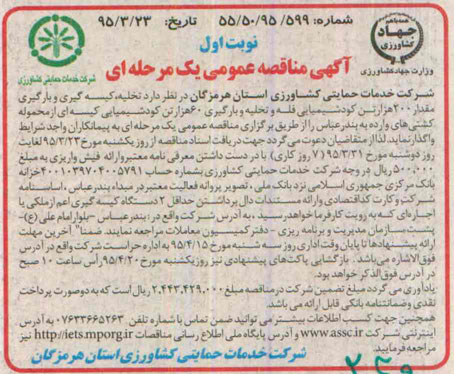 شماره: ۵۵/۵۰/۹۵/۵۹۹ تاریخ: ۹۵/۳/۲۳
همه با هم
جهاد
کشاورزی
وزارت جهاد کشاورزی
نوبت اول
شرکت خدمات حمایتی کشاورزی
آگهی مناقصه عمومی یک مرحله ای
شرکت خدمات حمایتی کشاورزی استان هرمزگان در نظر دارد تخلیه، کیسه گیری و بارگیری
مقدار ۲۰۰هزارتن کودشیمیایی فله و تخلیه و بارگیری ۶۰هزارتن کودشیمیایی کیسه ای از محموله
کشتی های وارده به بندرعباس را از طریق برگزاری مناقصه عمومی یک مرحله ای به پیمانکاران واجد شرایط
واگذار نماید. لذا از متقاضیان دعوت می گردد جهت دریافت اسناد مناقصه از روز یکشنبه مورخ ۹۵/۳/۲۳ لغایت
روز دوشنبه مورخ ۹۵/۳/۳۱ (۷ روز کاری). با در دست داشتن معرفی نامه معتبر و ارائه فیش واریزی به مبلغ
۵۰۰.۰۰۰ریال در وجه شرکت خدمات حمایتی کشاورزی بشماره حساب ۴۰۰۱۰۳۹۷۰۴۰۰۵۷۹۱خزانه
بانک مرکزی جمهوری اسلامی نزد بانک ملی، تصویر پروانه فعالیت معتبر در مبداء بندرعباس، اساسنامه
شرکت و کارت کد اقتصادی و ارائه مستندات دال برداشتن حداقل ۲ دستگاه کیسه گیری اعم از ملکی یا
اجاره ای که به رویت کارفرما خواهد رسید، به آدرس شرکت واقع در: بندرعباس -بلوار امام علی (ع)-
پشت سازمان مدیریت و برنامه ریزی - دفتر کمیسیون معاملات مراجعه نمایند. ضمناً آخرین مهلت
ارائه پیشنهادها تا پایان وقت اداری روز سه شنبه مورخ ۹۵/۴/۱۵ به اداره حراست شرکت واقع در آدرس
فوق الاشاره می باشد. بازگشایی پاکت های پیشنهادی نیز روز یکشنبه مورخ ۹۵/۴/۲۰ رأس ساعت ۱۰ صبح
در آدرس فوق الذکر خواهد بود.
یادآوری می گردد مبلغ تضمین شرکت در مناقصه مبلغ ۲.۴۴۳.۴۲۹.۰۰۰ ریال است که به دو صورت پرداخت
نقدی و ضمانتنامه بانکی قابل ارائه می باشد.
همچنین جهت کسب اطلاعات بیشتر می توانید ضمن تماس با شماره تلفن ۰۷۶۳۳۶۶۵۲۶۳ به آدرس
اینترنتی شرکت www.assc.ir و آدرس پایگاه ملی اطلاع رسانی مناقصات http://iets.mporg.ir نیز
مراجعه فرمایید.
شرکت خدمات حمایتی کشاورزی استان هرمزگان